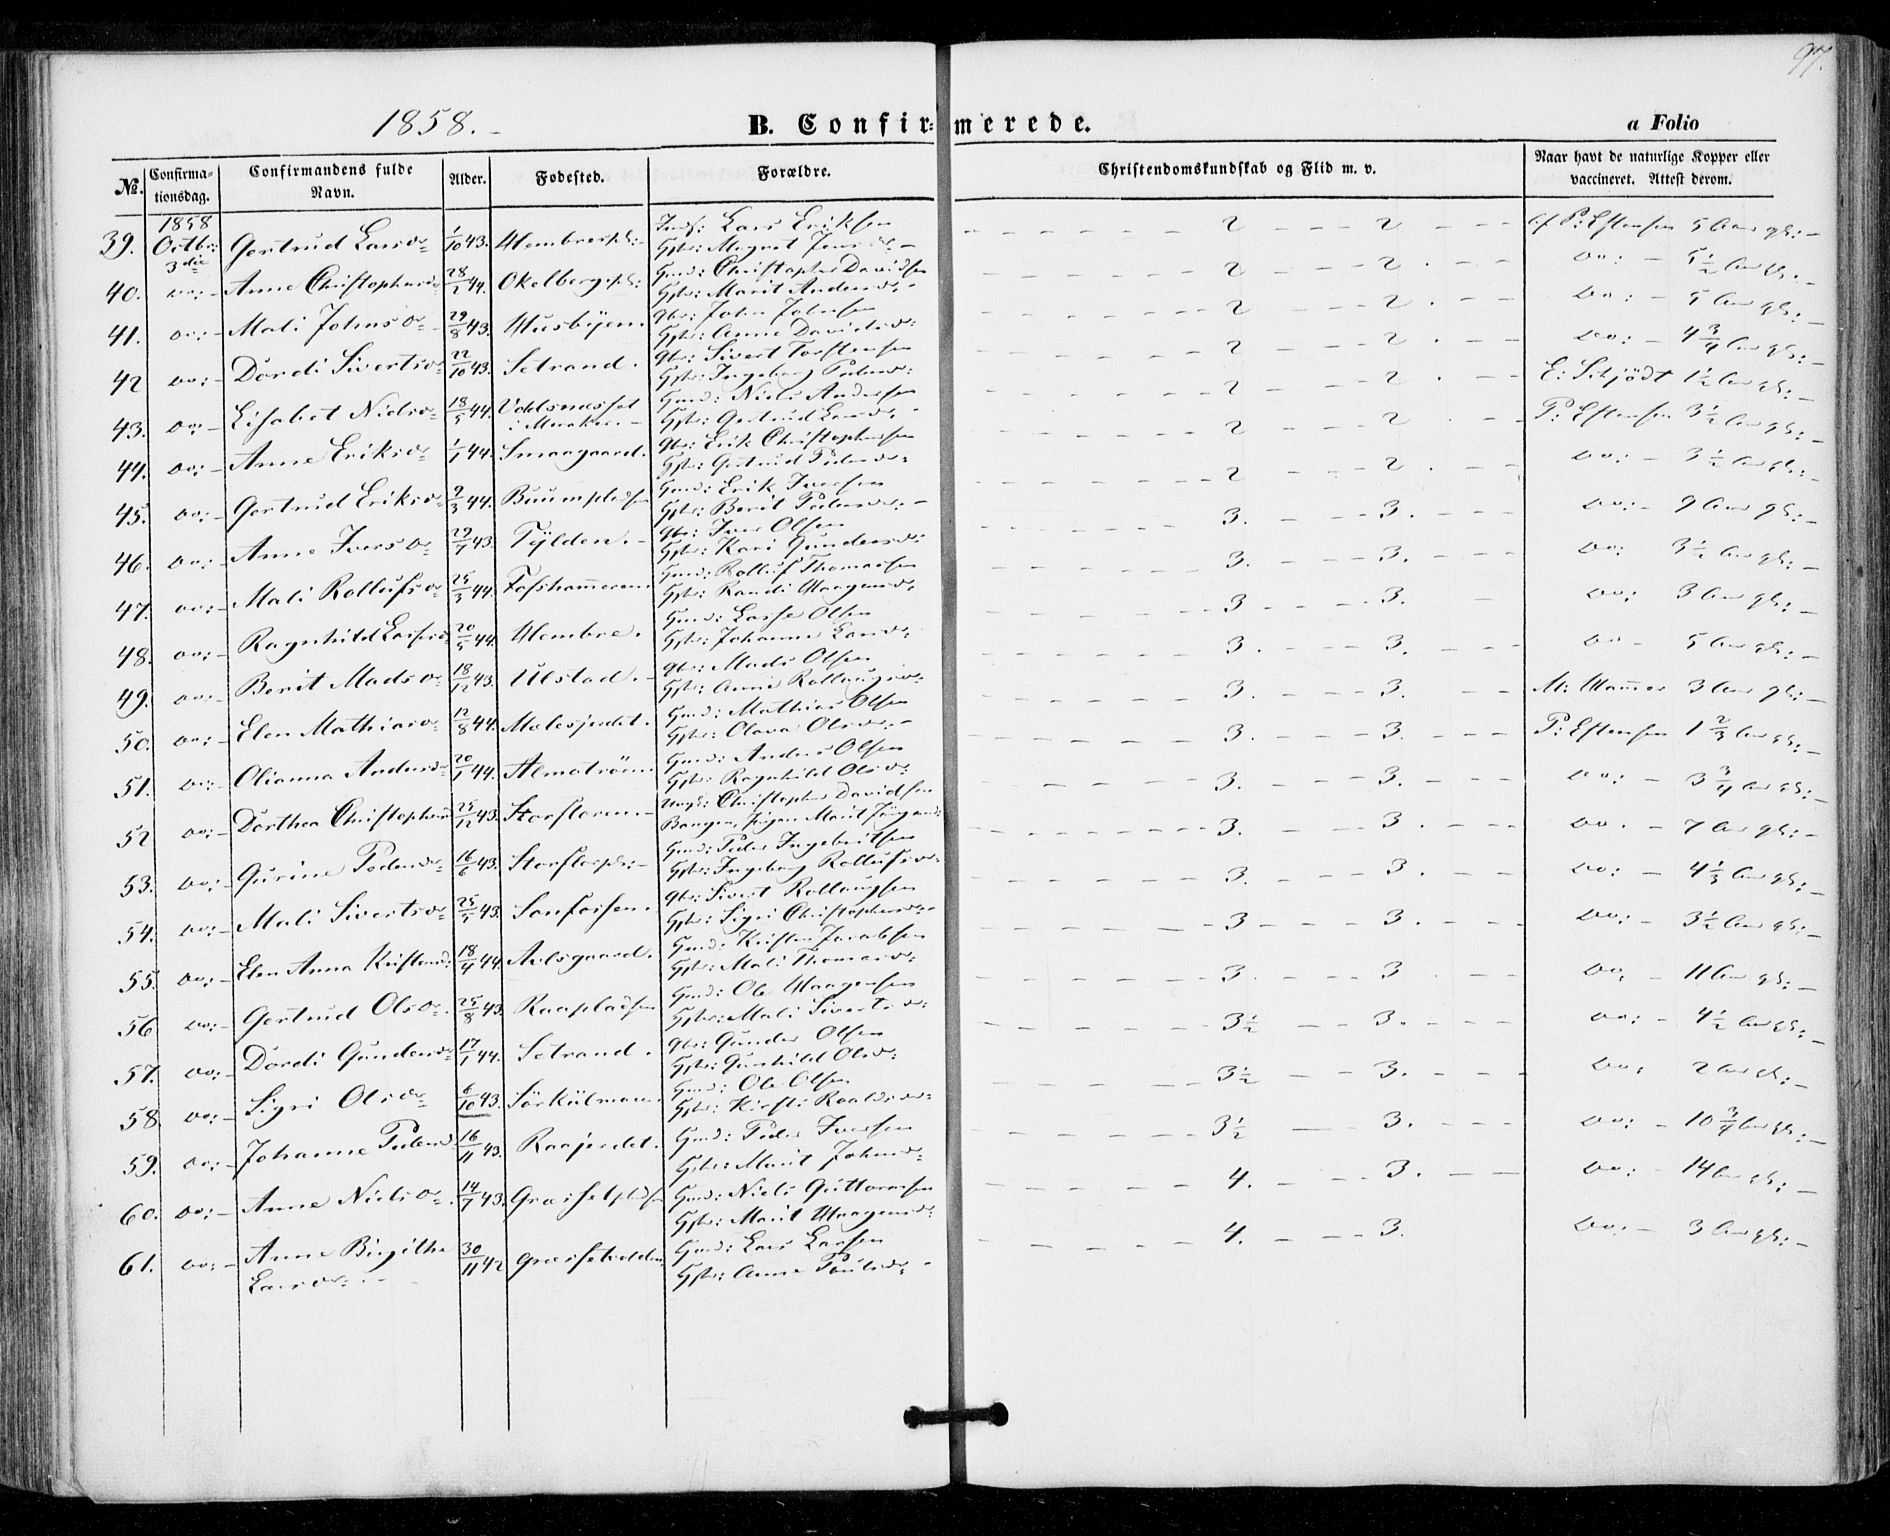 97.
1858.-
B. Confirmerede.
a Folio
No.
Confirmationsdag.
Confirmandens fulde Navn.
Alder.
Fødested.
Forældre.
Christendomskundskab og Flid m. v.
Naar havt de naturlige Kopper eller vaccineret. Attest derom.
1858
Octbr: 3die
39. Gertrud Larsd: 1/10 43. Lars Eriksen 2 2 af P: Estensen 5 Aar gl:
Gstr: Magret Jensd:
40. do: Anne Christophersd: 28/2 44. Okelbergspl: Gmd: Christopher Davidsen 2 2 do: 5 1/2 Aar gl:
Gstr: Marit Andersd:
41. do: Mali Johnsd: 29/8 43. Husbyen Gbr: John Johnsen 2 2 do: 5 Aar gl:
Gstr: Anne Davidsd:
42 do: Dordi Sivertsd: 22/10 43. Setrand. Gbr: Sivert Torstensen 2 2 do: 4 3/4 Aar gl:
Gstr: Ingeborg Pedersd:
43. do: Lisabet Nielsd: 18/5 44. i Meraker Gmd: Niels Andersen 2 2 E: Schjödt 1 1/2 Aar gl:
Gstr: Gertrud Larsd:
44. do: Anne Eriksd: 1/1 44. Smaagaard. Gbr: Erik Christophersen 2 2 P: Estensen 3 1/2 Aar gl:
Gstr: Gertrud Pedersd:
45. do: Gertrud Eriksd: 9/3 44. Gmd: Erik Iversen 2 2 do: 3 1/2 Aar gl:
Gstr: Berit Pedersd:
46. do: Anne Iversd: 29/7 43. Tylden. Gbr: Iver Olsen 3. 3. do: 9 Aar gl:
Gstr: Kari Gundersd:
47. do: Mali Rollufsd: 25/3 44. Fosshammeren Gmd: Rolluf Thomassen 3. 3. do: 3 1/2 Aar gl:
Gstr: Randi Haagensd:
48. do: Ragnhild Lassesd: 20/5 44. Hembre. Gmd: Lasse Olsen 3 3. do: 3 Aar gl:
Gstr: Johanne Larsd:
49. do: Berit Madsd: 18/12 43. Ulstad. Gbr: Mads Olsen 3. 3. do 5 Aar gl:
Gstr: Anne Rollaugsd:
50. do: Elen Mathiasd: 12/8 44. Gmd: Mathias Olsen 3. 3. 3 Aar gl:
Gstr: Olava Olsd:
51. do: Olianna Andersd: 20/1 44. Gmd: Anders Olsen 3. 3. P: Estensen 1 2/3 Aar gl:
Gstr: Ragnhild Olsd:
52 do: Dorthea Christophersd: 25/12 43. Storfloren Ungk: Christopher Davidsen 3. 3. do: 3 3/4 Aar gl:
Bangen, Pigen Marit Jörgensd:
53. do: Gurine Pedersd: 16/6 43. Storflorpl: Gmd: Peder Ingebritsen 3. 3. do. 7 Aar gl:
Gstr: Ingeborg Rollufsd:
54. do: Mali Sivertsd: 25/5 43. Sonfossen. Gbr: Sivert Rollaugsen 3. 3. do: 4 1/3 Aar gl:
Gstr: Sigri Christophersd:
55. do: Elen Anna Kristensd: 18/4 44. Avlsgaard. Gmd: Kristen Jacobsen 3 3. do: 3 1/2 Aar gl:
Gstr: Mali Thomasd:
56 do: Gertrud Olsd: 25/8 43. Raapladsen Gmd: Ole Haagensen 3. 3 do: 11 Aar gl:
Gstr: Mali Sivertsd:
57. do: Dordi Gundersd: 17/1 44. Setrand. Gbr: Gunder Olsen 3 1/2 3. do: 4 1/2 Aar gl:
Gstr: Gunhild Olsd:
58. do: Sigri Olsd: 6/10 43. Sörkulmoen. Gmd: Ole Olsen 3 1/2 3. do: 2 Aar gl:
Gstr: Kirsti Roaldsd:
59. do: Johanne Pedersd: 16/11 43. Raajerdet. Gmd: Peder Iversen 3 1/2 3. do: 10 3/4 Aar gl:
Gstr: Marit Johnsd:
60. do: Anne Nielsd: 14/7 43. Græsletpladsen Gmd: Niels Guttormsen 4. 3. do: 14 Aar gl:
Gstr: Marit Haagensd:
61. do: Anne Birgithe 30/11 42 Gmd: Lars Larsen 4. 3. do: 3 Aar gl:
Larsd: Gstr: Anne Paulsd: